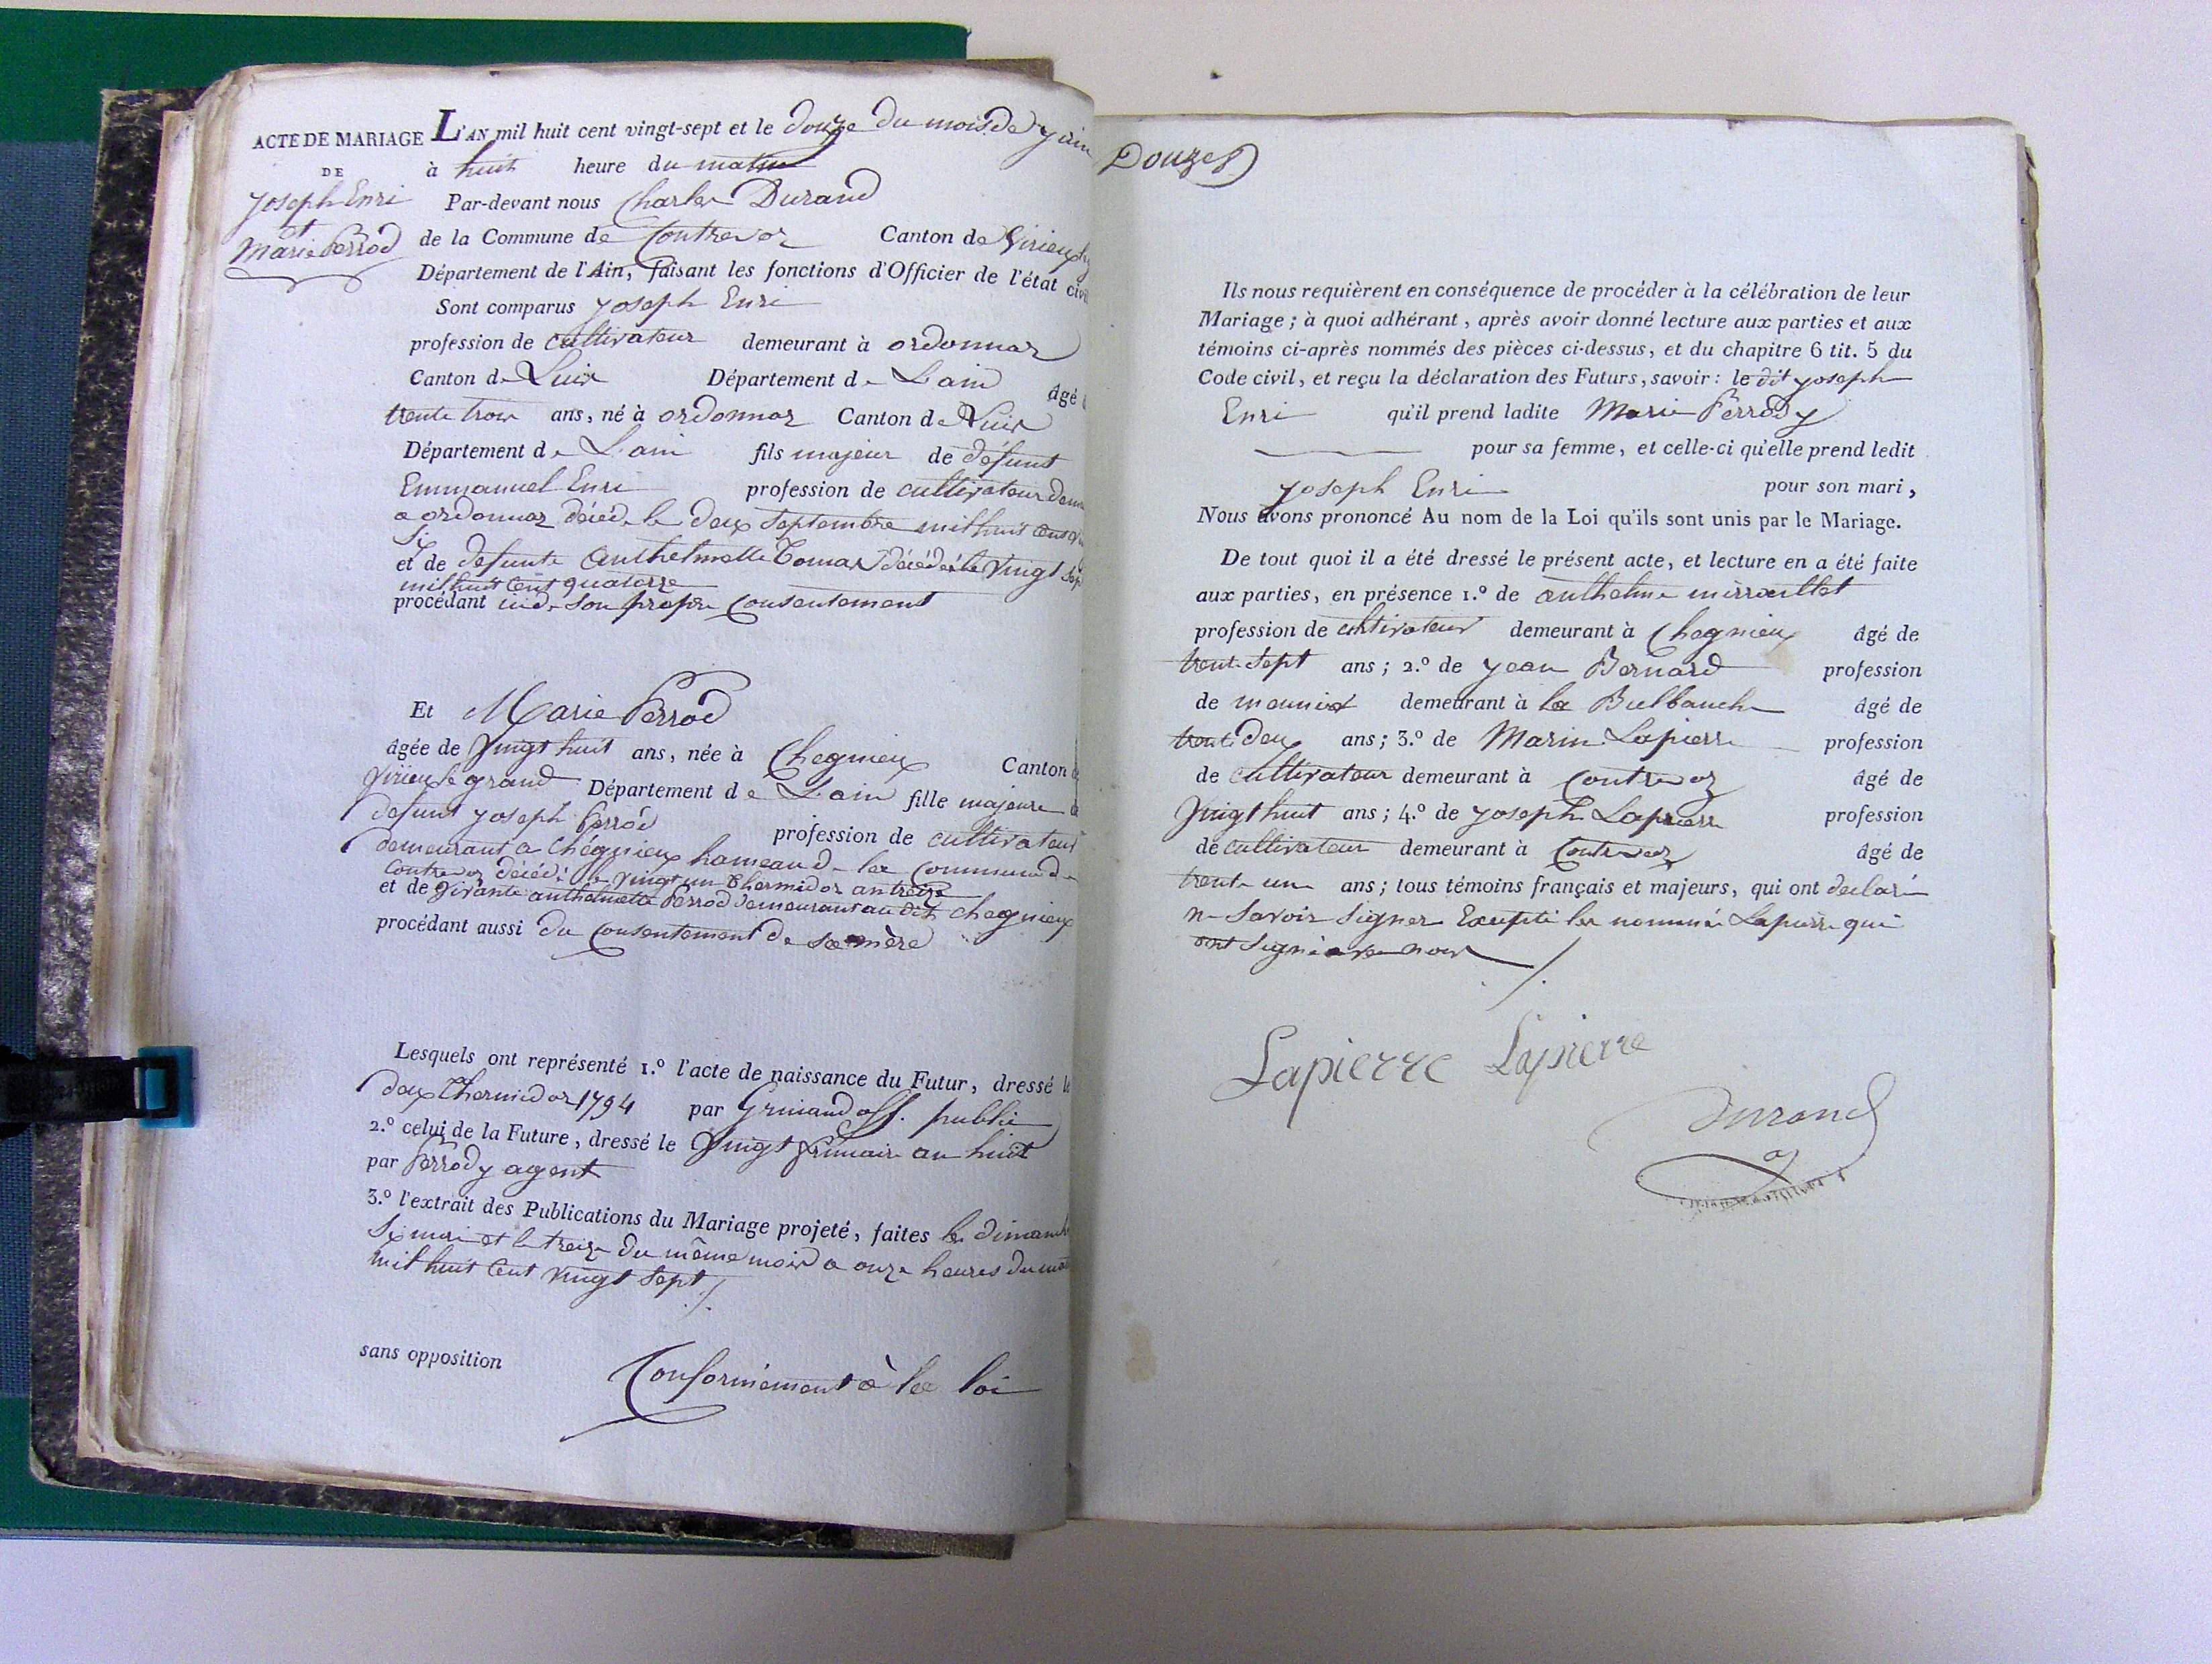 ACTE DE MARIAGE L'AN mil huit cent vingt-sept et le douze du mois de juin
DE à huit heure du matin
Joseph Enri Par-devant nous Charles Durand
et
Marie Perrod de la Commune de Contrevoz Canton de Virieu
Département de l'Ain, faisant les fonctions d'Officier de l'état civil
Sont comparus Joseph Enri
profession de cultivateur demeurant à ordonnaz
Canton de Luis Département de Lain âgé
trente trois ans, né à ordonnaz Canton de Luis
Département de Lain fils majeur de défunt
Emmanuel Enri profession de cultivateur
a ordonnaz décédé le deux Septembre mil huit cent
Six
et de defunte anthelmette Tomas décédée le vingt
mil huit cent quatorze
procédant de son propre consentement
Et Marie Perrod
âgée de vingt huit ans, née à Chegnieu Canton
virieu le grand Département de Lain fille majeure
defunt joseph Perrod profession de cultivateur
demeurant a Chegnieu hameau de la Commune de
Contrevoz décédé le vingt un Thermidor an treize
et de vivante anthelmette Perrod demeurant au dit chegnieu
procédant aussi du consentement de sa mère
Lesquels ont représenté 1.º l'acte de naissance du Futur, dressé le
deux Thermidor 1794 par off. public
2.º celui de la Future, dressé le vingt frimaire an huit
par Perrody agent
3.º l'extrait des Publications du Mariage projeté, faites le dimanche
Six mai et le treize du même mois a onze heures du
mil huit cent vingt sept
sans opposition
Conformément à la loi
Douze
Ils nous requièrent en conséquence de procéder à la célébration de leur
Mariage ; à quoi adhérant, après avoir donné lecture aux parties et aux
témoins ci-après nommés des pièces ci-dessus, et du chapitre 6 tit. 5 du
Code civil, et reçu la déclaration des Futurs, savoir : le dit joseph
Enri qu'il prend ladite Marie Perrody
pour sa femme, et celle-ci qu'elle prend ledit
Joseph Enri pour son mari,
Nous avons prononcé Au nom de la Loi qu'ils sont unis par le Mariage.
De tout quoi il a été dressé le présent acte, et lecture en a été faite
aux parties, en présence 1.º de anthelme mirraillet
profession de cultivateur demeurant à Chegnieu âgé de
trente sept ans ; 2.º de jean Bernard profession
de meunier demeurant à la Bulbanche âgé de
trente deux ans ; 3.º de Marin Lapierre profession
de cultivateur demeurant à Contrevoz âgé de
vingt huit ans ; 4.º de joseph Lapierre profession
de cultivateur demeurant à Contrevoz âgé de
trente un ans ; tous témoins français et majeurs, qui ont declaré
ne Savoir Signer Excepté les nommés Lapierre qui
ont Signé avec nous
Lapierre Lapierre
Durand